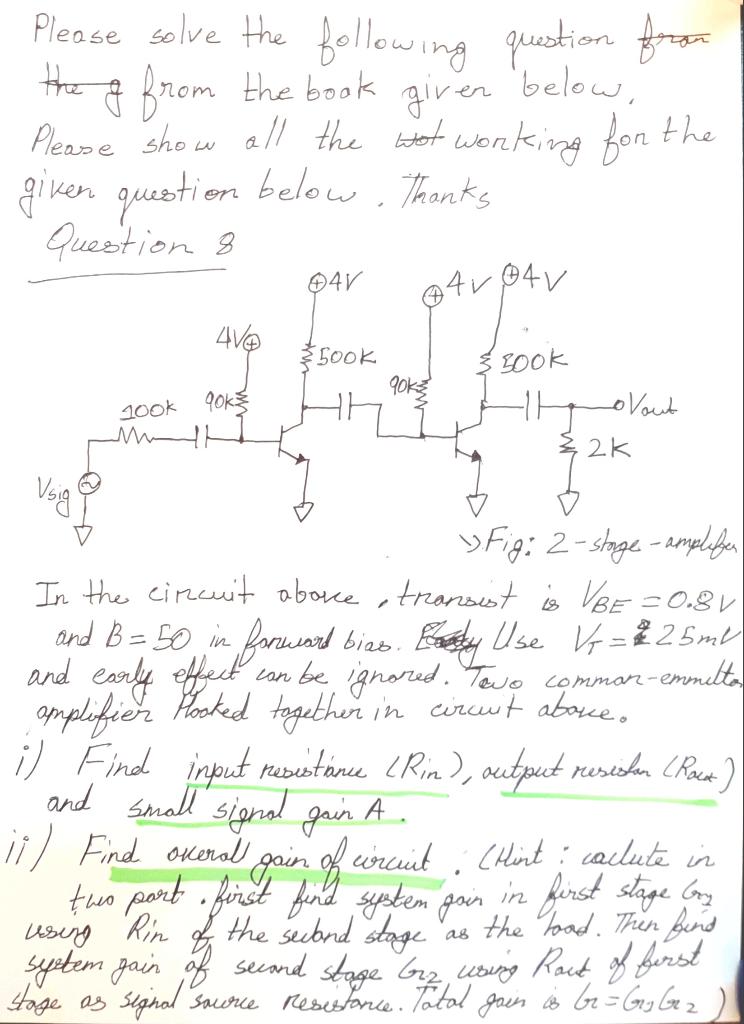 Please solve the following question fron
the q from the book given below.
Please show all the wot working for the
given question below. Thanks
Question 8
4V
4V
4V
4V
500K
300K
90K
90K
100K
Vout
2K
Vsig
Fig: 2-stage-amplifier
In the circuit above, transist is VBE = 0.8V
and B = 50 in forward bias. Early Use VT = 25mV
and early effect can be ignored. Two common-emmitter
amplifier Hooked together in circuit above.
i) Find input resistance (Rin), output resistan (Rout)
and small signal gain A.
ii) Find overall gain of circuit. (Hint: caclute in
two part. first find system gain in first stage G1
using Rin of the second stage as the load. Then find
system gain of second stage G2 using Rout of first
stage as signal source resistance. Total gain is G = G1G2)